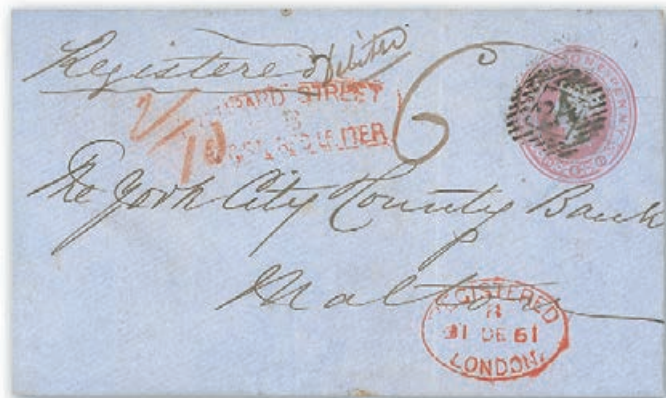 Registered
2/10
6
LOMBARD STREET
B
ONE PENNY
The York City & County Bank
Malton
REGISTERED
B
31 DE 61
LONDON